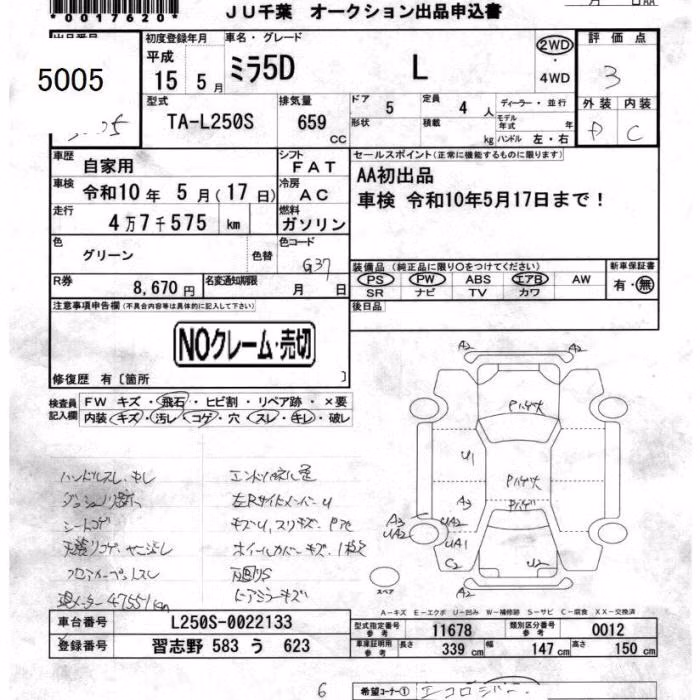 *0017620*
JU千葉 オークション出品申込書
月 日AA
出品番号
5005
初度登録年月
平成
15 5月
車名・グレード
ミラ5D L
2WD
・
4WD
評価点
3
外装 内装
P C
型式
TA-L250S
排気量
659
CC
ドア 5
定員 4人
形状
積載 kg
ディーラー・並行
モデル年式 年
ハンドル 左・右
車歴
自家用
車検
令和10年 5月(17日)
走行
4万7千575 km
色
グリーン
色替
シフト
FAT
冷房
AC
燃料
ガソリン
色コード
G37
R券
8,670円
名変通知期限
月 日
セールスポイント(正常に機能するものに限ります)
AA初出品
車検 令和10年5月17日まで!
装備品(純正品に限り〇をつけてください)
PS PW ABS エアB AW
SR ナビ TV カワ
新車保証書
有・無
後日品
注意事項申告欄(不具合内容等は具体的に記入して下さい)
NOクレーム・売切
修復歴 有〔箇所 〕
検査員
記入欄
FW キズ・飛石・ヒビ割・リペア跡・×要
内装・キズ・汚レ・コゲ・穴・スレ・キレ・破レ
ハンドルスレ、
シートコゲ
天張リコゲ、ヤニ汚レ
フロアカーペットスレ
現メーター 47551km
左Rサイドメンバーu
キズu、スリキズ、P
ホイールカバーキズ、1枚欠
ドアミラーキズ
A2
A2
U1
A3
A3
UA2
UA2
UA1
C2
U2
A2
スペア
A-キズ E-エクボ U-凹み W-補修跡 S-サビ C-腐食 XX-交換済
車台番号
L250S-0022133
登録番号
習志野 583 う 623
型式指定番号
参考
11678
類別区分番号
参考
0012
車庫証明用
参考
長さ 339cm
幅 147cm
高さ 150cm
6
希望コーナー①
エコロジバー